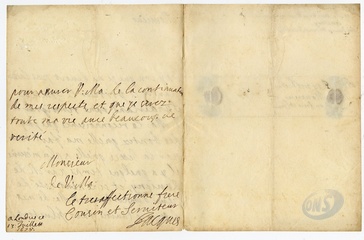 pour assurer V: Ma: de la continuation
de mes respects et que je serez
toute ma vie avec beaucoup de
verité
Monsieur
de V: Ma:
le tres affectionne frere
Cousin et Serviteur
Jacques
a Londres ce
ONS